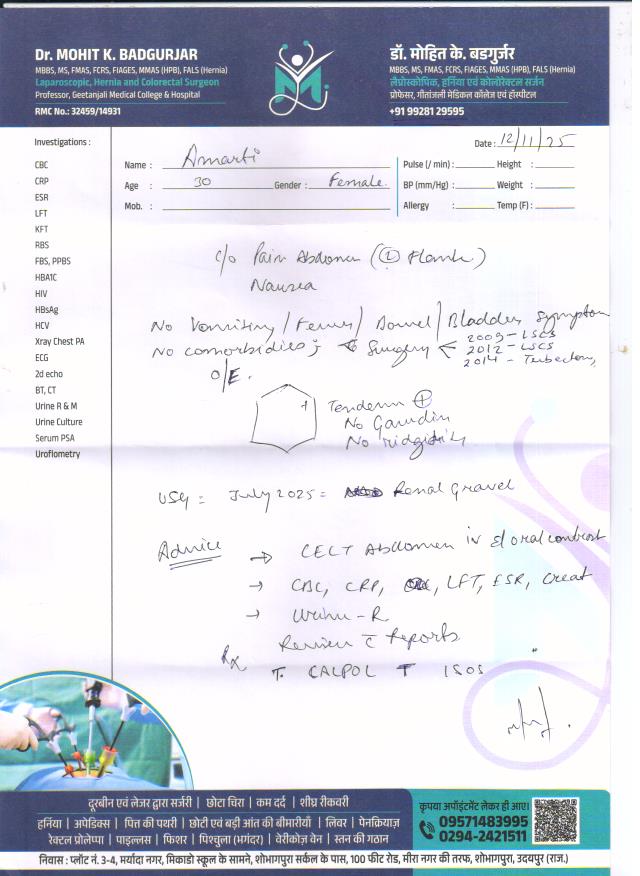 Dr. MOHIT K. BADGURJAR
MBBS, MS, FMAS, FCRS, FIAGES, MMAS (HPB), FALS (Hernia)
Laparoscopic, Hernia and Colorectal Surgeon
Professor, Geetanjali Medical College & Hospital
RMC No.: 32459/14931
डॉ. मोहित के. बडगुर्जर
MBBS, MS, FMAS, FCRS, FIAGES, MMAS (HPB), FALS (Hernia)
लैप्रोस्कोपिक, हर्निया एवं कोलोरेक्टल सर्जन
प्रोफेसर, गीतांजली मेडिकल कॉलेज एवं हॉस्पीटल
+91 99281 29595
Date : 12/11/25
Name : Amarti
Age : 30 Gender : Female.
Mob. :
Pulse (/ min) : Height :
BP (mm/Hg) : Weight :
Allergy : Temp (F) :
Investigations :
CBC
CRP
ESR
LFT
KFT
RBS
FBS, PPBS
HBA1C
HIV
HBsAg
HCV
Xray Chest PA
ECG
2d echo
BT, CT
Urine R & M
Urine Culture
Serum PSA
Uroflometry
c/o Pain Abdomen ( Flank)
Nausea
No Vomiting / Fever / Bowel / Bladder Symptom
No comorbidies ; Surgery < 2009 - LSCS
2012 - LSCS
2014 -
O/E.
+ Tendern ⊕
No
No
USG = July 2025 = Renal Gravel
Advice → CECT Abdomen oral contrast
→ CBC, CRP, LFT, ESR, Creat
→ - R
Review c̄ Reports
Rx
T. CALPOL
दूरबीन एवं लेजर द्वारा सर्जरी | छोटा चिरा | कम दर्द | शीघ्र रीकवरी
हर्निया | अपेडिक्स | पित्त की पथरी | छोटी एवं बड़ी आंत की बीमारीयाँ | लिवर | पेनक्रियाज़
रेक्टल प्रोलेप्पा | पाइल्लस | फिशर | पिश्चुला (भगंदर) | वेरीकोज़ वेन | स्तन की गठान
कृपया अपॉइंटमेंट लेकर ही आए।
09571483995
0294-2421511
निवास : प्लॉट नं. 3-4, मर्यादा नगर, मिकाडो स्कूल के सामने, शोभागपुरा सर्कल के पास, 100 फीट रोड, मीरा नगर की तरफ, शोभागपुरा, उदयपुर (राज.)